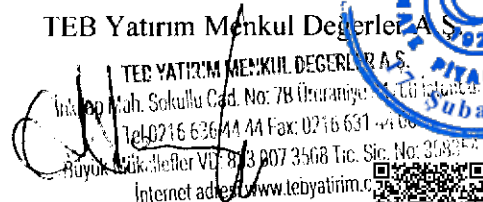 TEB Yatırım Menkul Değerler A.Ş.
TEB YATIRIM MENKUL DEGERLER A.Ş.
Mah. Sokullu Cad. No: 7B Ümraniye
Tel:0216 636 44 44 Fax: 0216 631 44
Büyük Mükellefler VD: 3508 Tic. Sic. No:
İnternet adresi www.tebyatirim.c